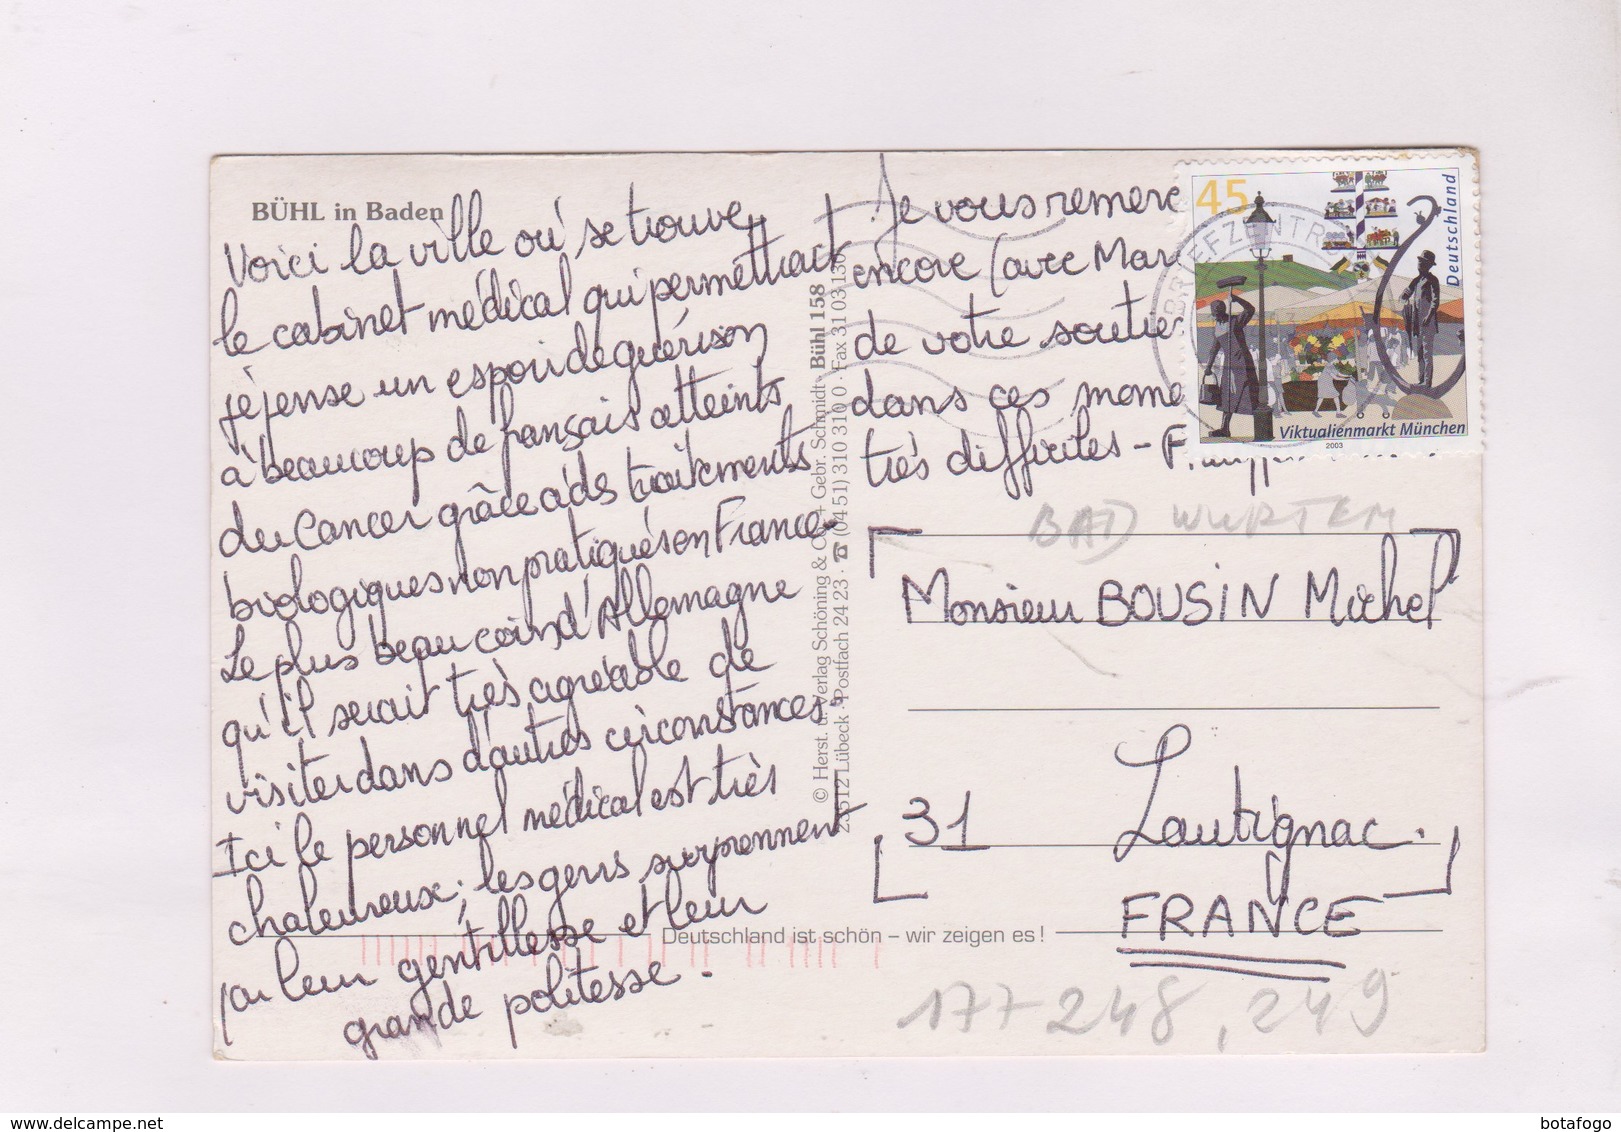 BÜHL in Baden
Voici la ville où se trouve
le cabinet médical qui permettrait
je pense un espoir de guérison
à beaucoup de français atteints
du cancer grâce à des traitements
biologiques non pratiqués en France.
Le plus beau coin d'Allemagne
qu'il serait très agréable de
visiter dans d'autres circonstances.
Ici le personnel médical est très
chaleureux; les gens surprennent
par leur gentillesse et leur
grande politesse.
© Herst. u. Verlag Schöning & Co. + Gebr. Schmidt · Bühl 158
23512 Lübeck · Postfach 24 23 · ☎ (04 51) 310 310 0 · Fax 31 03 130
Je vous remerc
encore (avec Mar
de votre soutie
dans ces mome
très difficiles -
45
Deutschland
BRIEFZENTRUM
Viktualienmarkt München
2003
BAD WURTEM
Monsieur BOUSIN Michel
31 Lautignac.
FRANCE
Deutschland ist schön – wir zeigen es!
177-248, 249
delcampe.net
botafogo